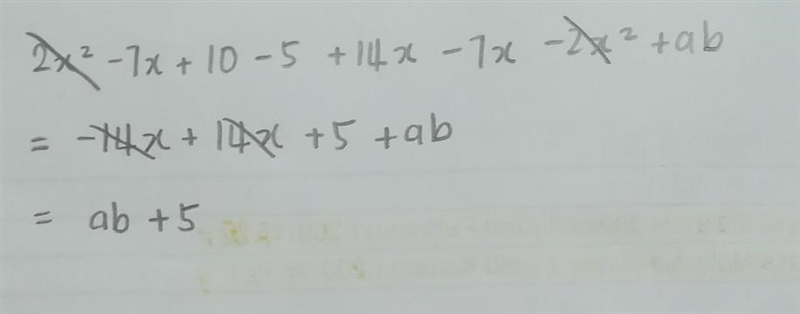 2x² - 7x + 10 - 5 + 14x - 7x - 2x² + ab
= -14x + 14x + 5 + ab
= ab + 5